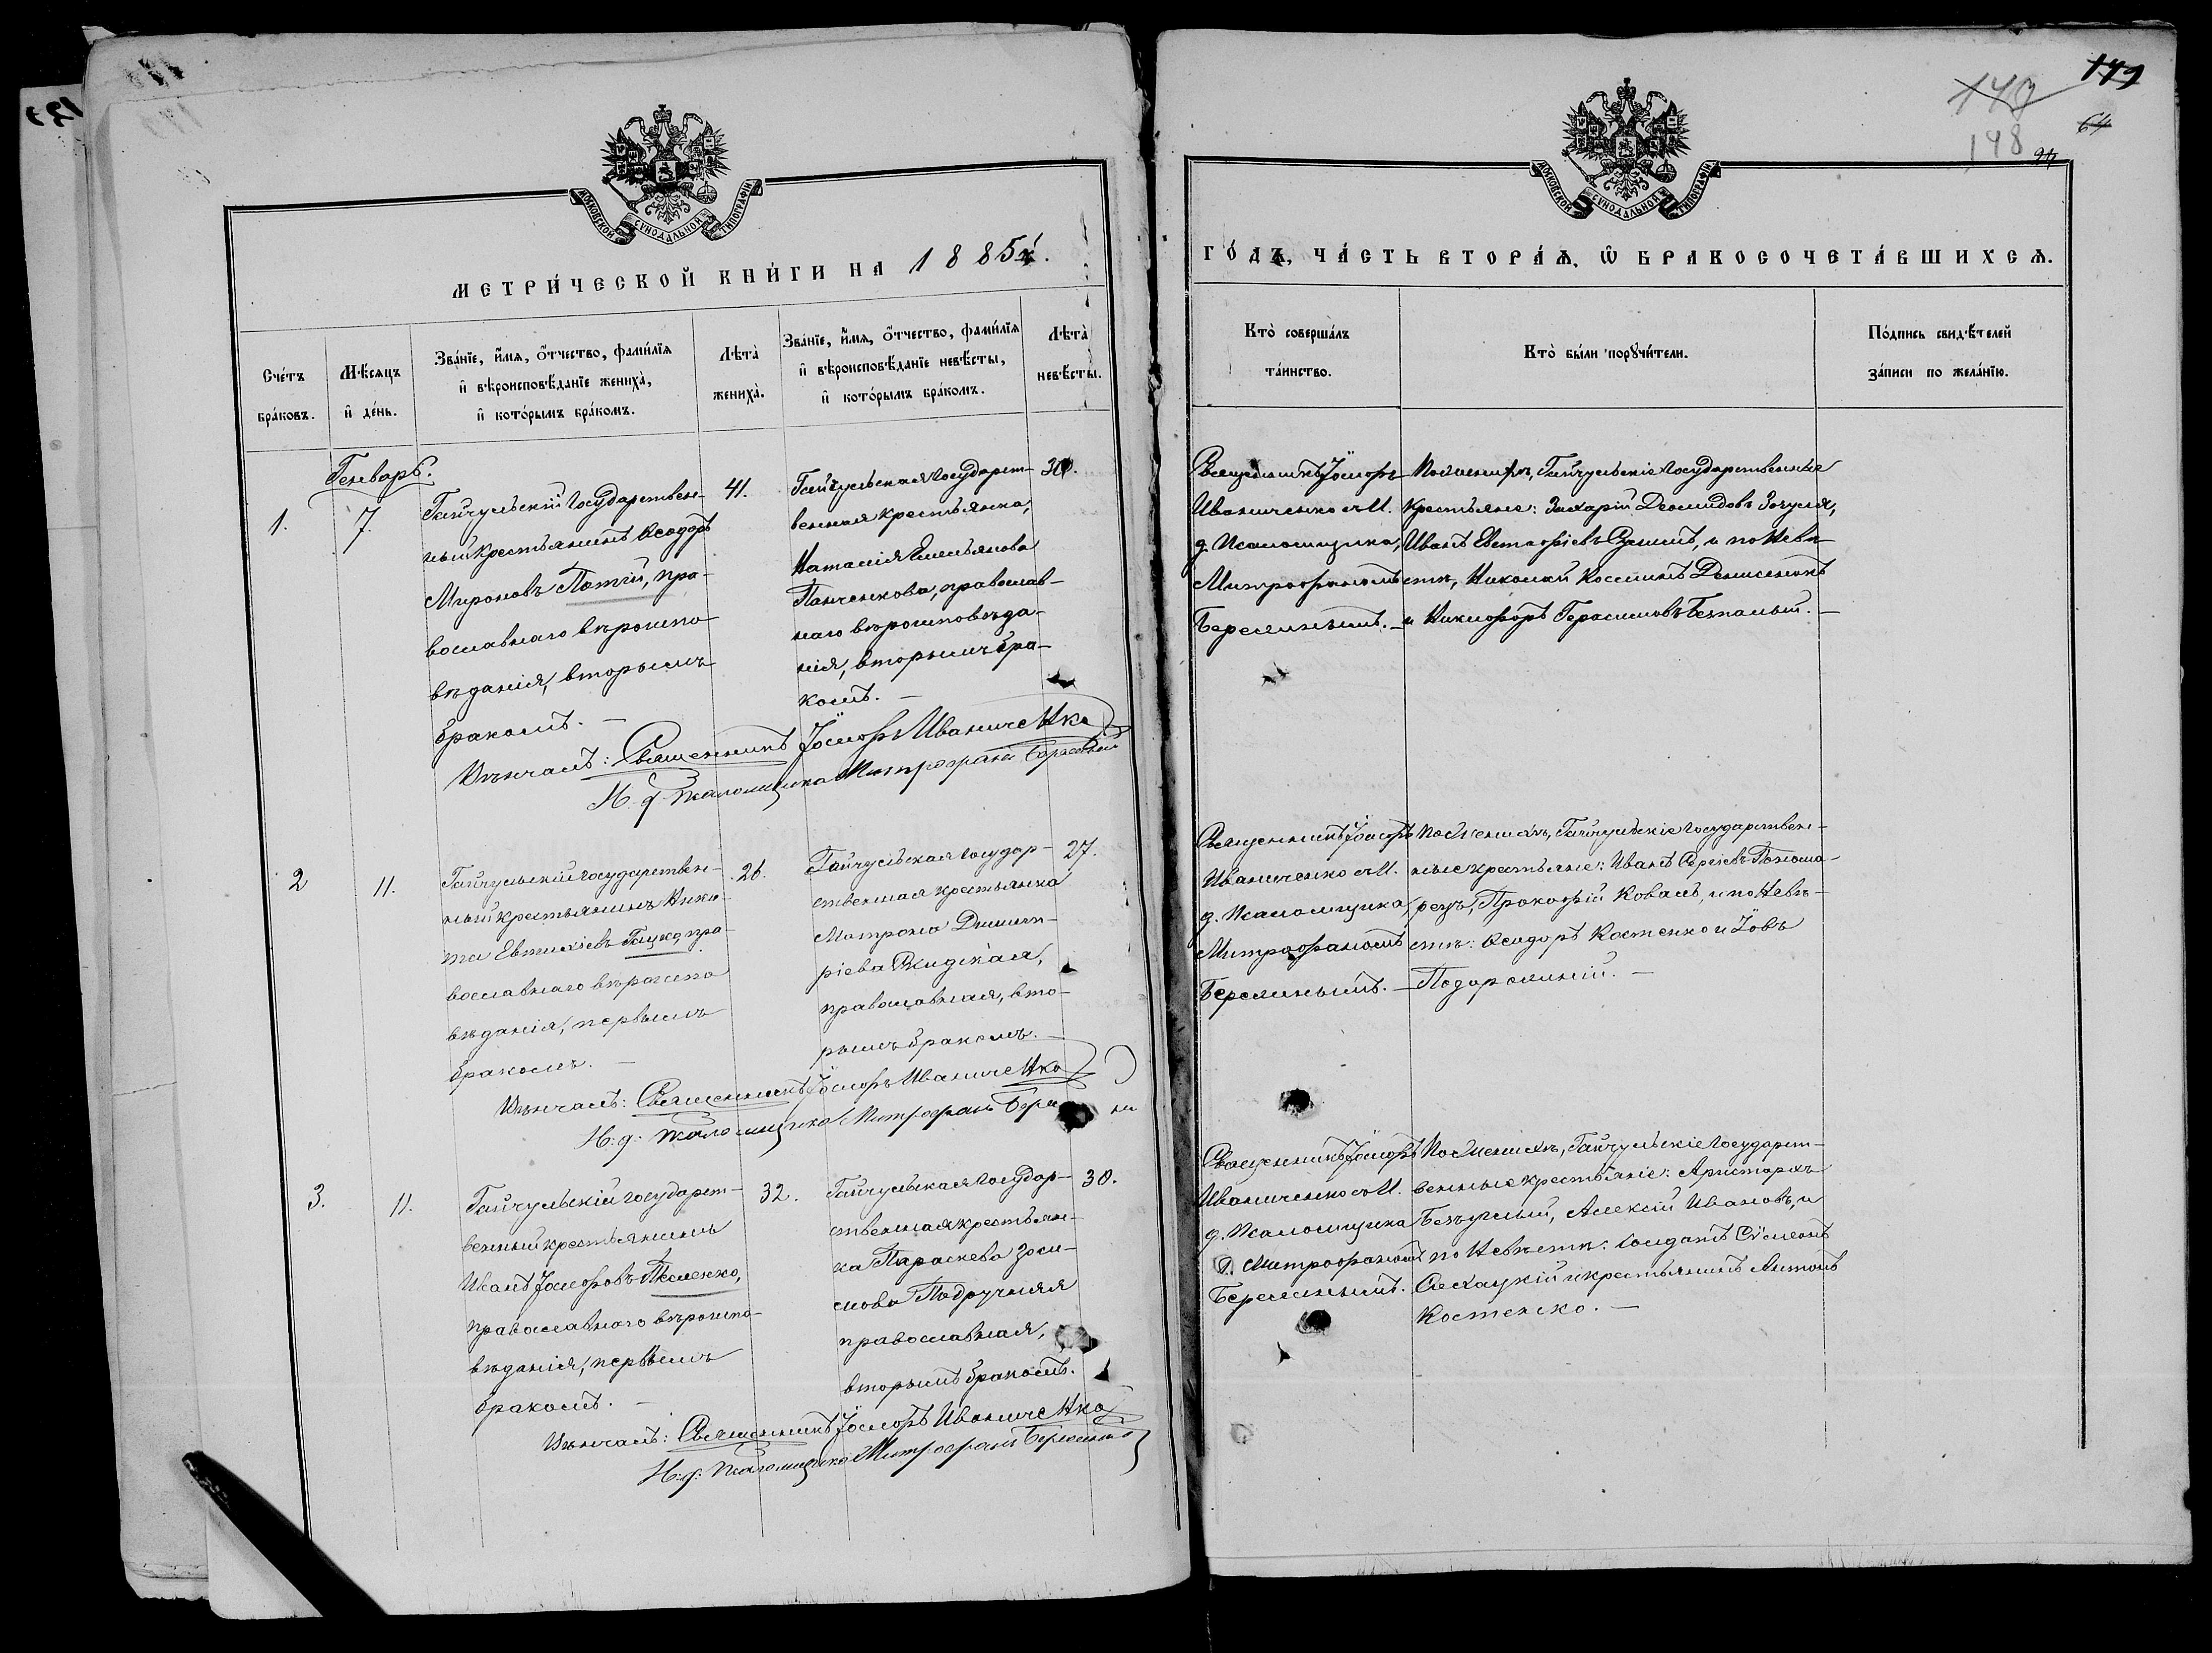 149
148
МОСКОВСКОЙ СУНОДАЛЬНОЙ ТИПОГРАФІИ
МЕТРИ́ЧЕСКОЙ КНИ́ГИ НА 1885й.
Сче́тъ бра́ковъ.
Мѣ́сяцъ и҆ де́нь.
Зва́нїе, и҆́мѧ, ѻ҆́тчество, фами́лїѧ
и҆ вѣроисповѣ́данїе жениха̀,
и҆ кото́рымъ бра́комъ.
Лѣта̀ жениха̀.
Зва́нїе, и҆́мѧ, ѻ҆́тчество, фами́лїѧ
и҆ вѣроисповѣ́данїе невѣ́сты,
и҆ кото́рымъ бра́комъ.
Лѣта̀ невѣ́сты.
Генварь.
1.
7.
Гайчульскій Государствен-
ный крестьянинъ Ѳеодоръ
Мироновъ Патій, пра-
вославнаго вѣроиспо-
вѣданія, вторымъ
бракомъ. —
41.
Гайчульская Государст-
венная крестьянка,
Наталія Емельянова
Панченкова, православ-
наго вѣроисповѣда-
нія, вторымъ бра-
комъ. —
30.
Вѣнчалъ: Священникъ Іосифъ Иваниченко
И. д. псаломщика Митрофанъ
2
11.
Гайчульскій Государствен-
ный крестьянинъ Ники-
та Евтихіевъ Гацко, пра-
вославнаго вѣроиспо-
вѣданія, первымъ
бракомъ. —
26.
Гайчульская Государ-
ственная крестьянка
Матрона Димит-
ріева
православная, вто-
рымъ бракомъ. —
27.
Вѣнчалъ: Священникъ Іосифъ Иваниченко
И. д. псаломщика Митрофанъ
3.
11.
Гайчульскій Государст-
венный крестьянинъ
Иванъ Іосифовъ
православнаго вѣроиспо-
вѣданія, первымъ
бракомъ. —
32.
Гайчульская Государ-
ственная крестьян-
ка Параскева Зоси-
мова Подручняя
православная,
вторымъ бракомъ.
30.
Вѣнчалъ: Священникъ Іосифъ Иваниченко
И. д. псаломщика Митрофанъ
МОСКОВСКОЙ СУНОДАЛЬНОЙ ТИПОГРАФІИ
ГО́ДЪ, ЧА́СТЬ ВТОРА́Ѧ, Ѡ҆ БРАКОСОЧЕТА́ВШИХСѦ.
Кто̀ соверша́лъ
та́инство.
Кто̀ бы́ли порꙋчи́тели.
По́дпись свидѣ́телей
за́писи по жела́нїю.
Священникъ Іосифъ
Иваниченко съ И.
д. Псаломщика,
Митрофаномъ
По женихѣ, Гайчульскіе Государственные
крестьяне: Захарій Демидовъ Зозуля,
Иванъ Евстафіевъ и по Невѣ-
стѣ, Николай Косминъ Денисенко
и Никифоръ Герасимовъ Безпалый. —
Священникъ Іосифъ
Иваниченко съ И.
д. Псаломщика,
Митрофаномъ
По женихѣ, Гайчульскіе Государствен-
ные крестьяне: Иванъ Сергіевъ Понома-
рецъ, Прокофій Коваль, и по Невѣ-
стѣ: Костенко и Іовъ
Священникъ Іосифъ
Иваниченко съ И.
д. Псаломщика
Митрофаномъ
По женихѣ, Гайчульскіе Государст-
венные крестьяне: Аристархъ
Безуглый, Алексій Ивановъ, и
по Невѣстѣ: солдатъ Сѵмеонъ
и крестьянинъ Антонъ
Костенко. —